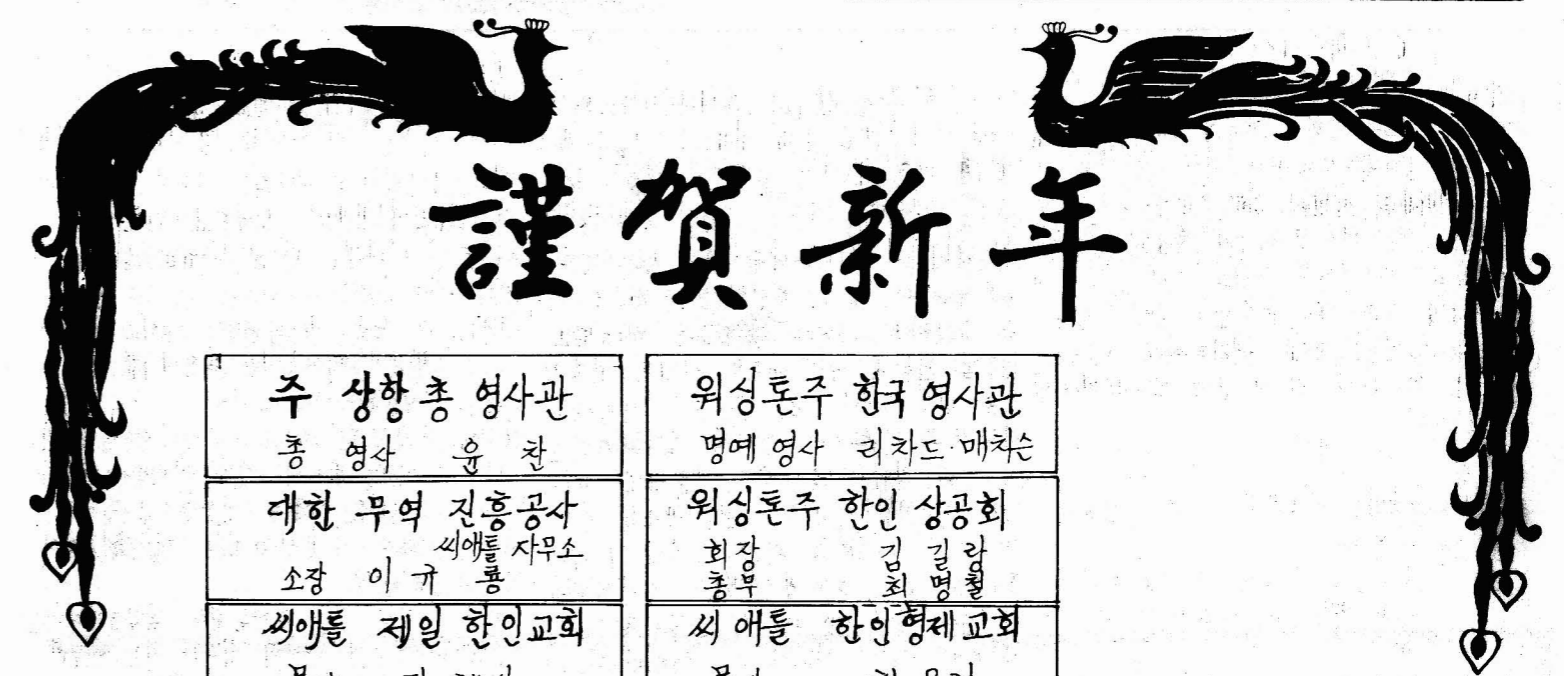 謹賀新年
주 상항 총 영사관
총 영사 윤 찬
대한 무역 진흥공사
씨애틀 사무소
소장 이 규 룡
씨애틀 제일 한인교회
워싱톤주 한국 영사관
명예 영사 리차드·매치슨
워싱톤주 한인 상공회
회장 김 길 랑
총무 최 명 철
씨애틀 한인형제교회